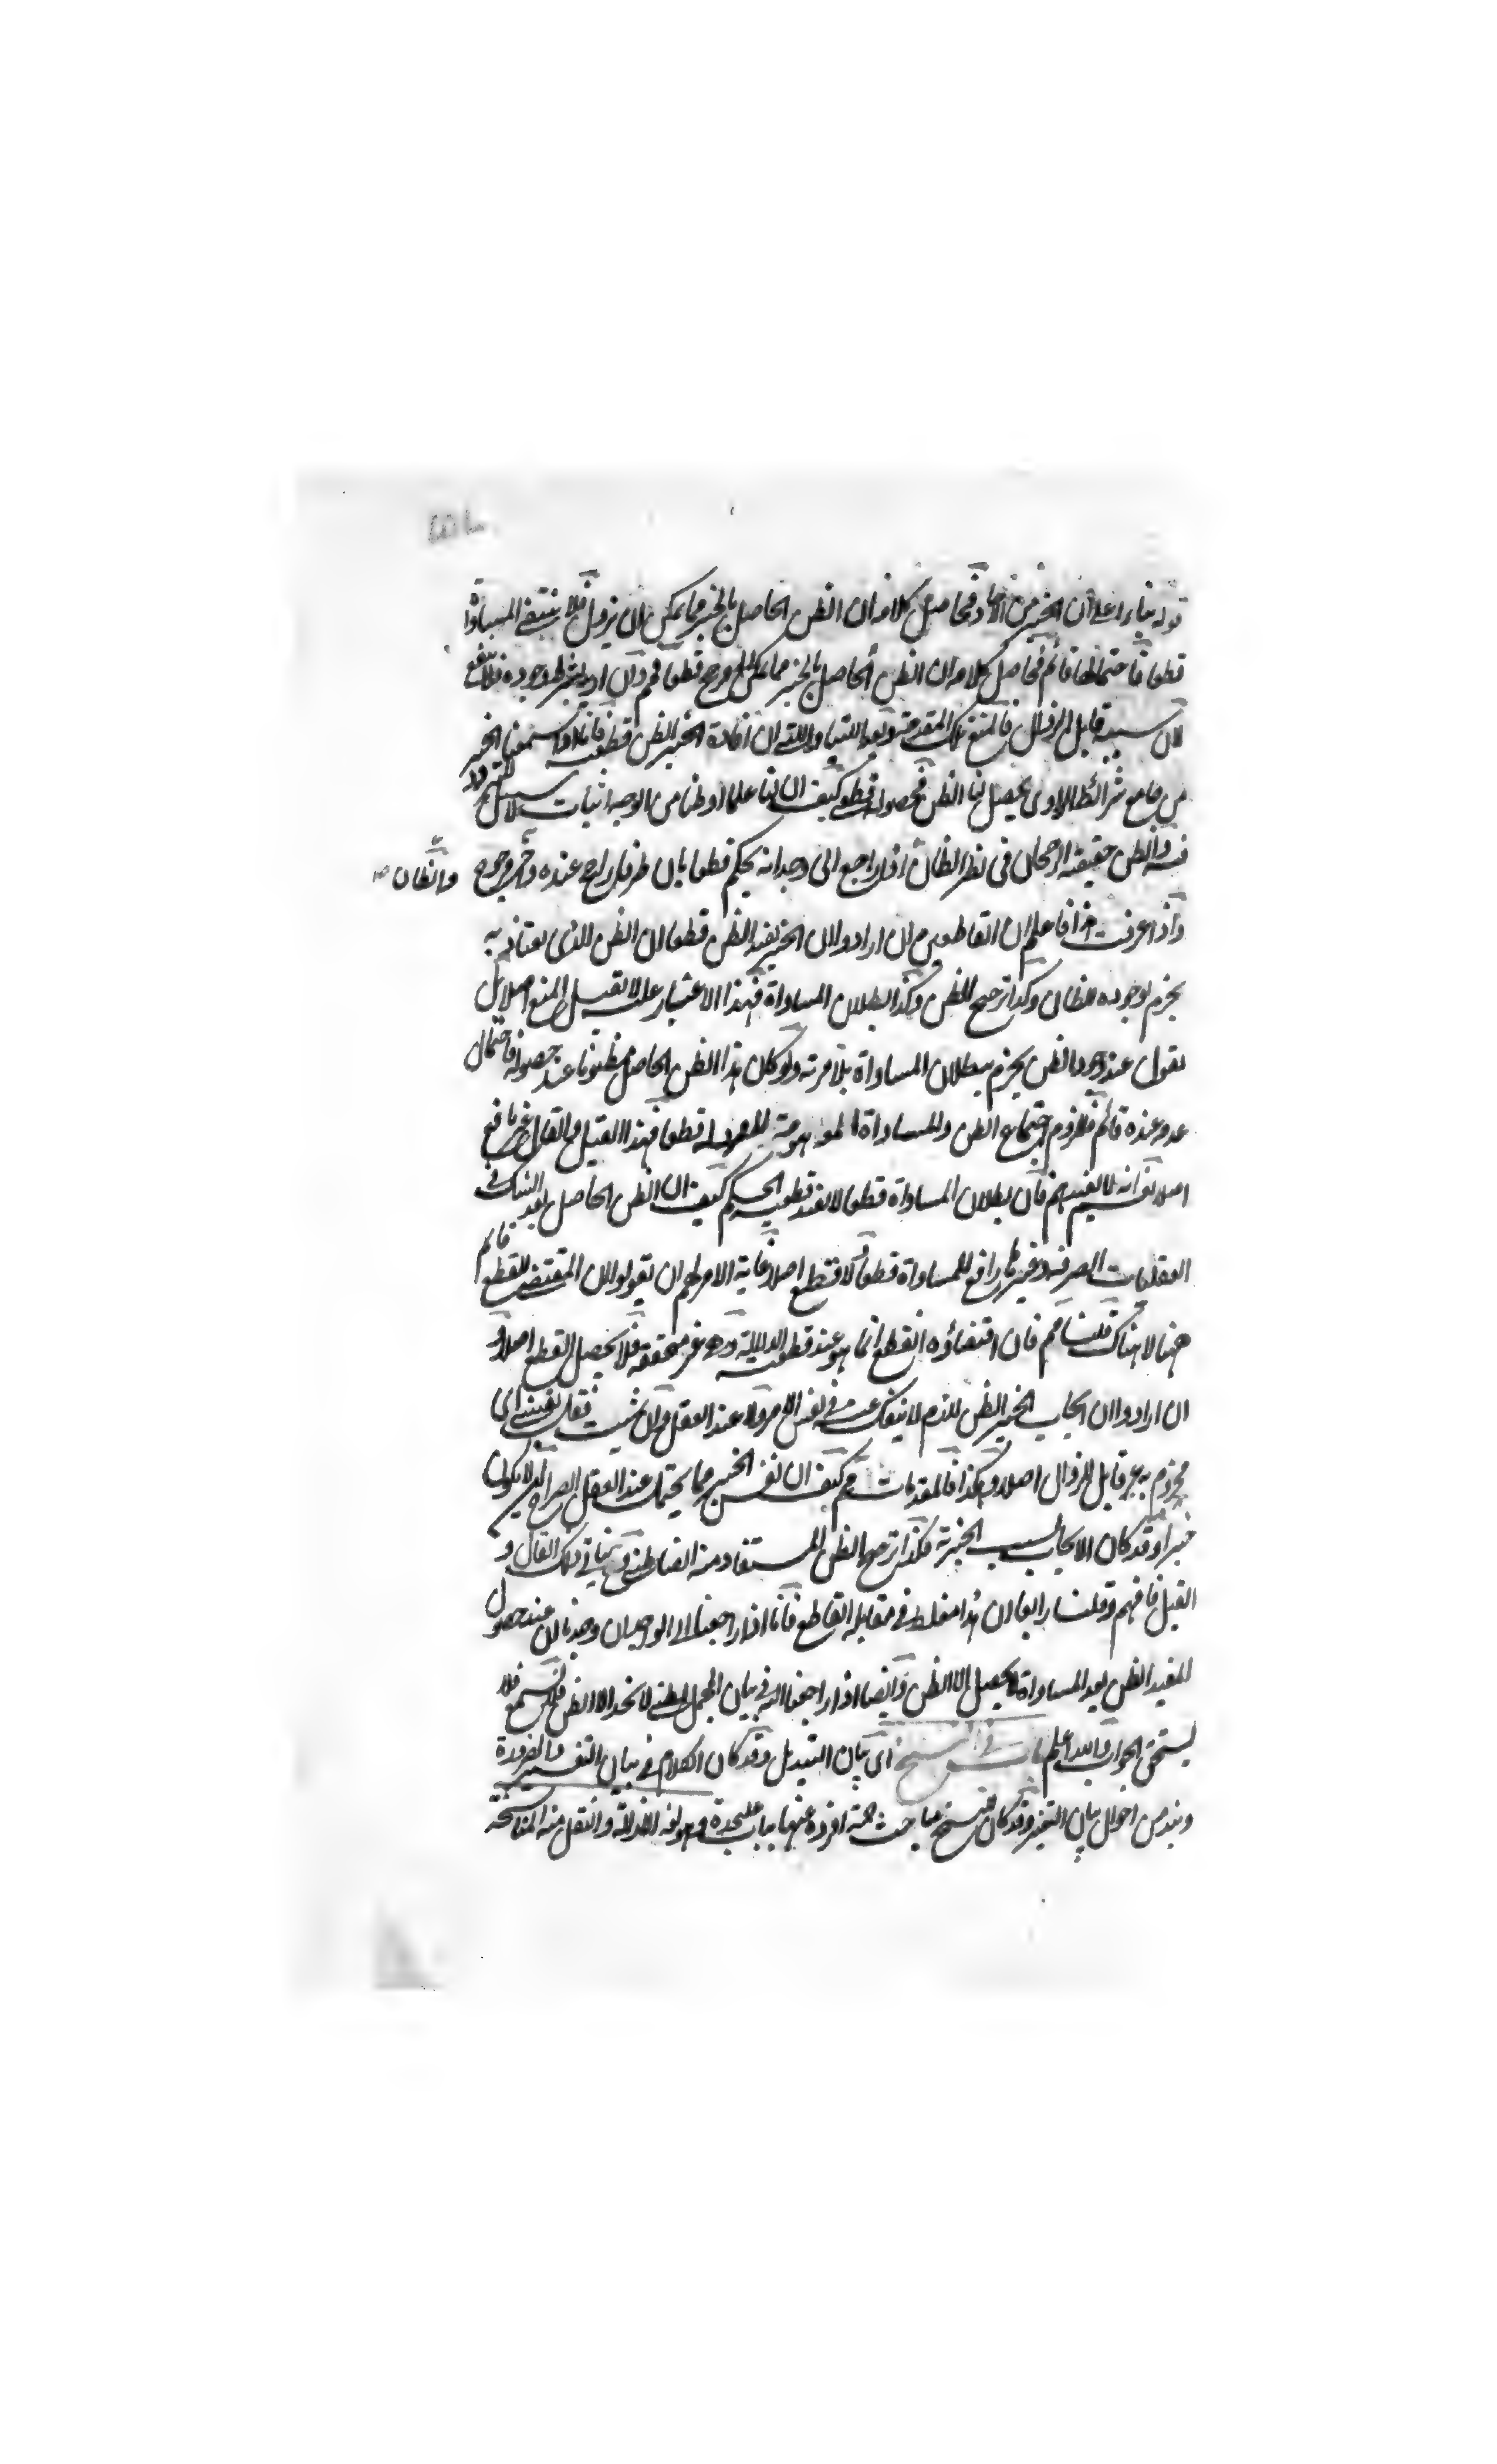 قوله بناء على أن الخبر من الآحاد فحاصل كلامه ان الظن الحاصل بالخبر مما يمكن ان يزول فلا ينتفي المساواة
قطعا فاحتمالها قائم فحاصل كلامه ان الظن الحاصل بالخبر مما قطعا فمم وان اريد بشرط وجوده فلا ينفع
لان سببه قابل الزوال فالمنع تلك المقدمة وبعد اللتيا والتي ان افادة الخبر الظن قطعية فانا لو سمعنا الخبر
من جامع شرائط الراوى يحصل لنا الظن فحصوله قطعي كيف ان لنا علما او ظنا من الوجدانيات لا سبيل للتردد
فيه والظن حقيقة الرجحان في نظر الظان والظان اذا راجع الى وجدانه يحكم قطعا بان طرفا راجح عنده وآخر مرجوح
واذا عرفت هذا فاعلم ان القاطعين ان ارادوا ان الخبر يفيد الظن قطعا ان الظن الذى به
يجزم بوجوده الظان وكذا ترجيح الظن وكذا بطلان المساواة فبهذا الاعتبار لا يقبل المنع اصلا بل
نقول عند وجود الظن يجزم ببطلان المساواة بلا مرية ولو كان هذا الظن الحاصل مظنونا عند حصوله فاحتمال
عدمه عنده قائم فلزوم اجتماع الظن والمساواة الموهومة قطعا فهذا القيل والقال غير نافع
اصلا نعم انه لا يفيدهم فان بطلان المساواة قطعا لا يفيد قطعية الحكم كيف ان الظن الحاصل بعد الشك في
العقليات الصرفة وغيرها رافع للمساواة قطعا ولا قطع اصلا غاية الامر لهم ان يقولوا ان المقتضى للقطع قائم
ههنا لا هناك قلنا مم فان اقتضاؤه القطع انما هو عند قطعية الدلالة وهي غير متحققة فلا يحصل القطع اصلا و
ان ارادوا ان ايجاب الخبر الظن لازم لا ينفك عنه في نفس الامر ولا عند العقل وان شئت فقل يقيني اى
مجزوم به غير قابل للزوال اصلا وهكذا فالمقدمات مم كيف ان نفس الخبر مما يحتمل عند العقل الصراح ان لا يكون
خبرا وقد كان الايجاب بسبب الخبرية فكذا ترجيح الظن المستفاد منه ايضا ظني ذلك القال و
القيل فافهم وقلنا رابعا ان هذا مغلطة في مقابلة القاطع فانا اذا راجعنا الى الوجدان وجدنا ان عند حصول
المفيد الظن بعد المساواة لا يحصل الا الظن وايضا اذا راجعنا اليه في بيان المجمل بظني لا نجد الا الظن فلا يسمع فلا
يستحق الجواب والله اعلم باب في النسخ اى بيان التبديل وقد كان الكلام في بيان التغيير والضرورة
من احوال بيان التغيير وقد كان للنسخ مباحث جمة افرده عنها بباب عليحدة وهو لغة الازالة والنقل منه المناسخة